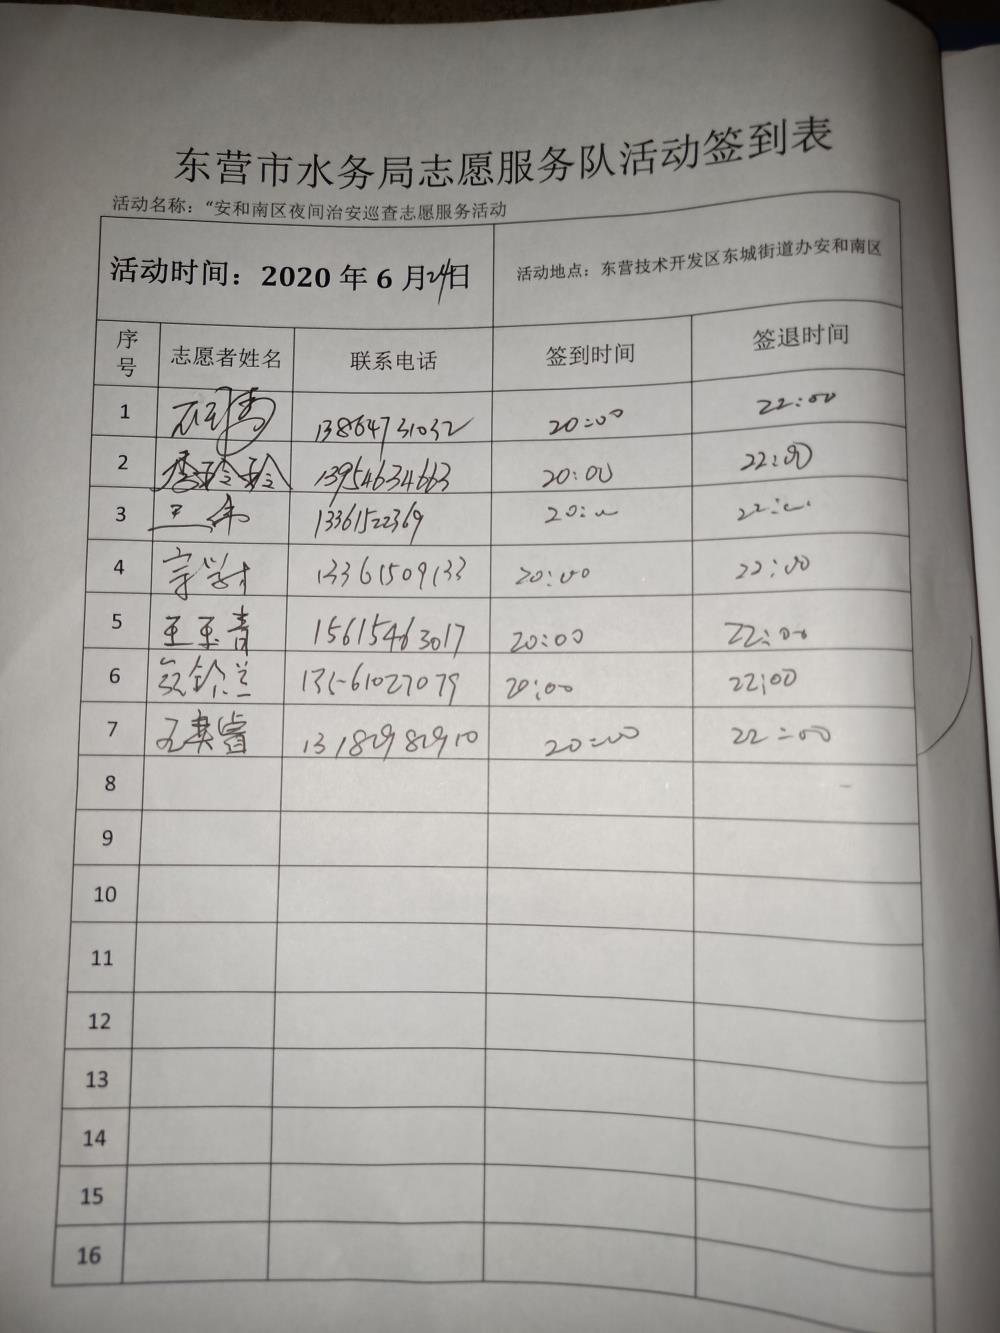 东营市水务局志愿服务队活动签到表
活动名称：“安和南区夜间治安巡查志愿服务活动
活动时间：2020 年 6 月 24日 活动地点：东营技术开发区东城街道办安和南区
序号 志愿者姓名 联系电话 签到时间 签退时间
1 13864731032 20:00 22:00
2 李玲玲 13954634663 20:00 22:00
3 13361522369 20:00 22:00
4 13361509133 20:00 22:00
5 王玉青 15615463017 20:00 22:00
6 13561027079 20:00 22:00
7 13189898910 20:00 22:00
8
9
10
11
12
13
14
15
16